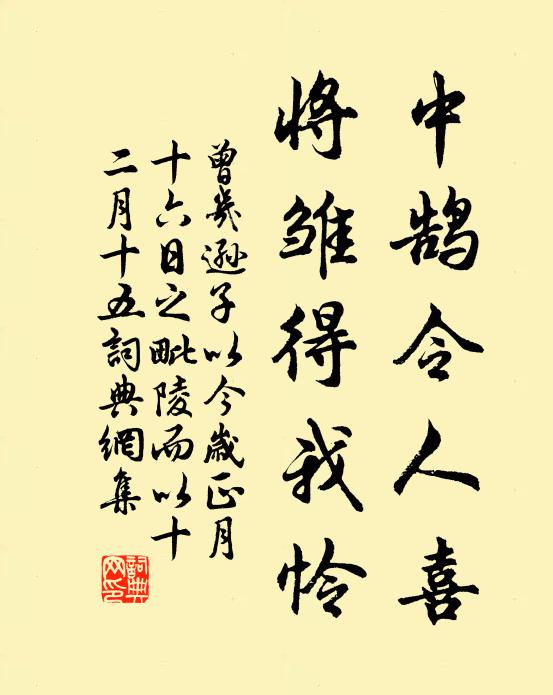 中鹄令人喜
將雏得我怜
曾幾遜子以今歲正月
十六日之毗陵而以十
二月十五詞典網集
詞典网印